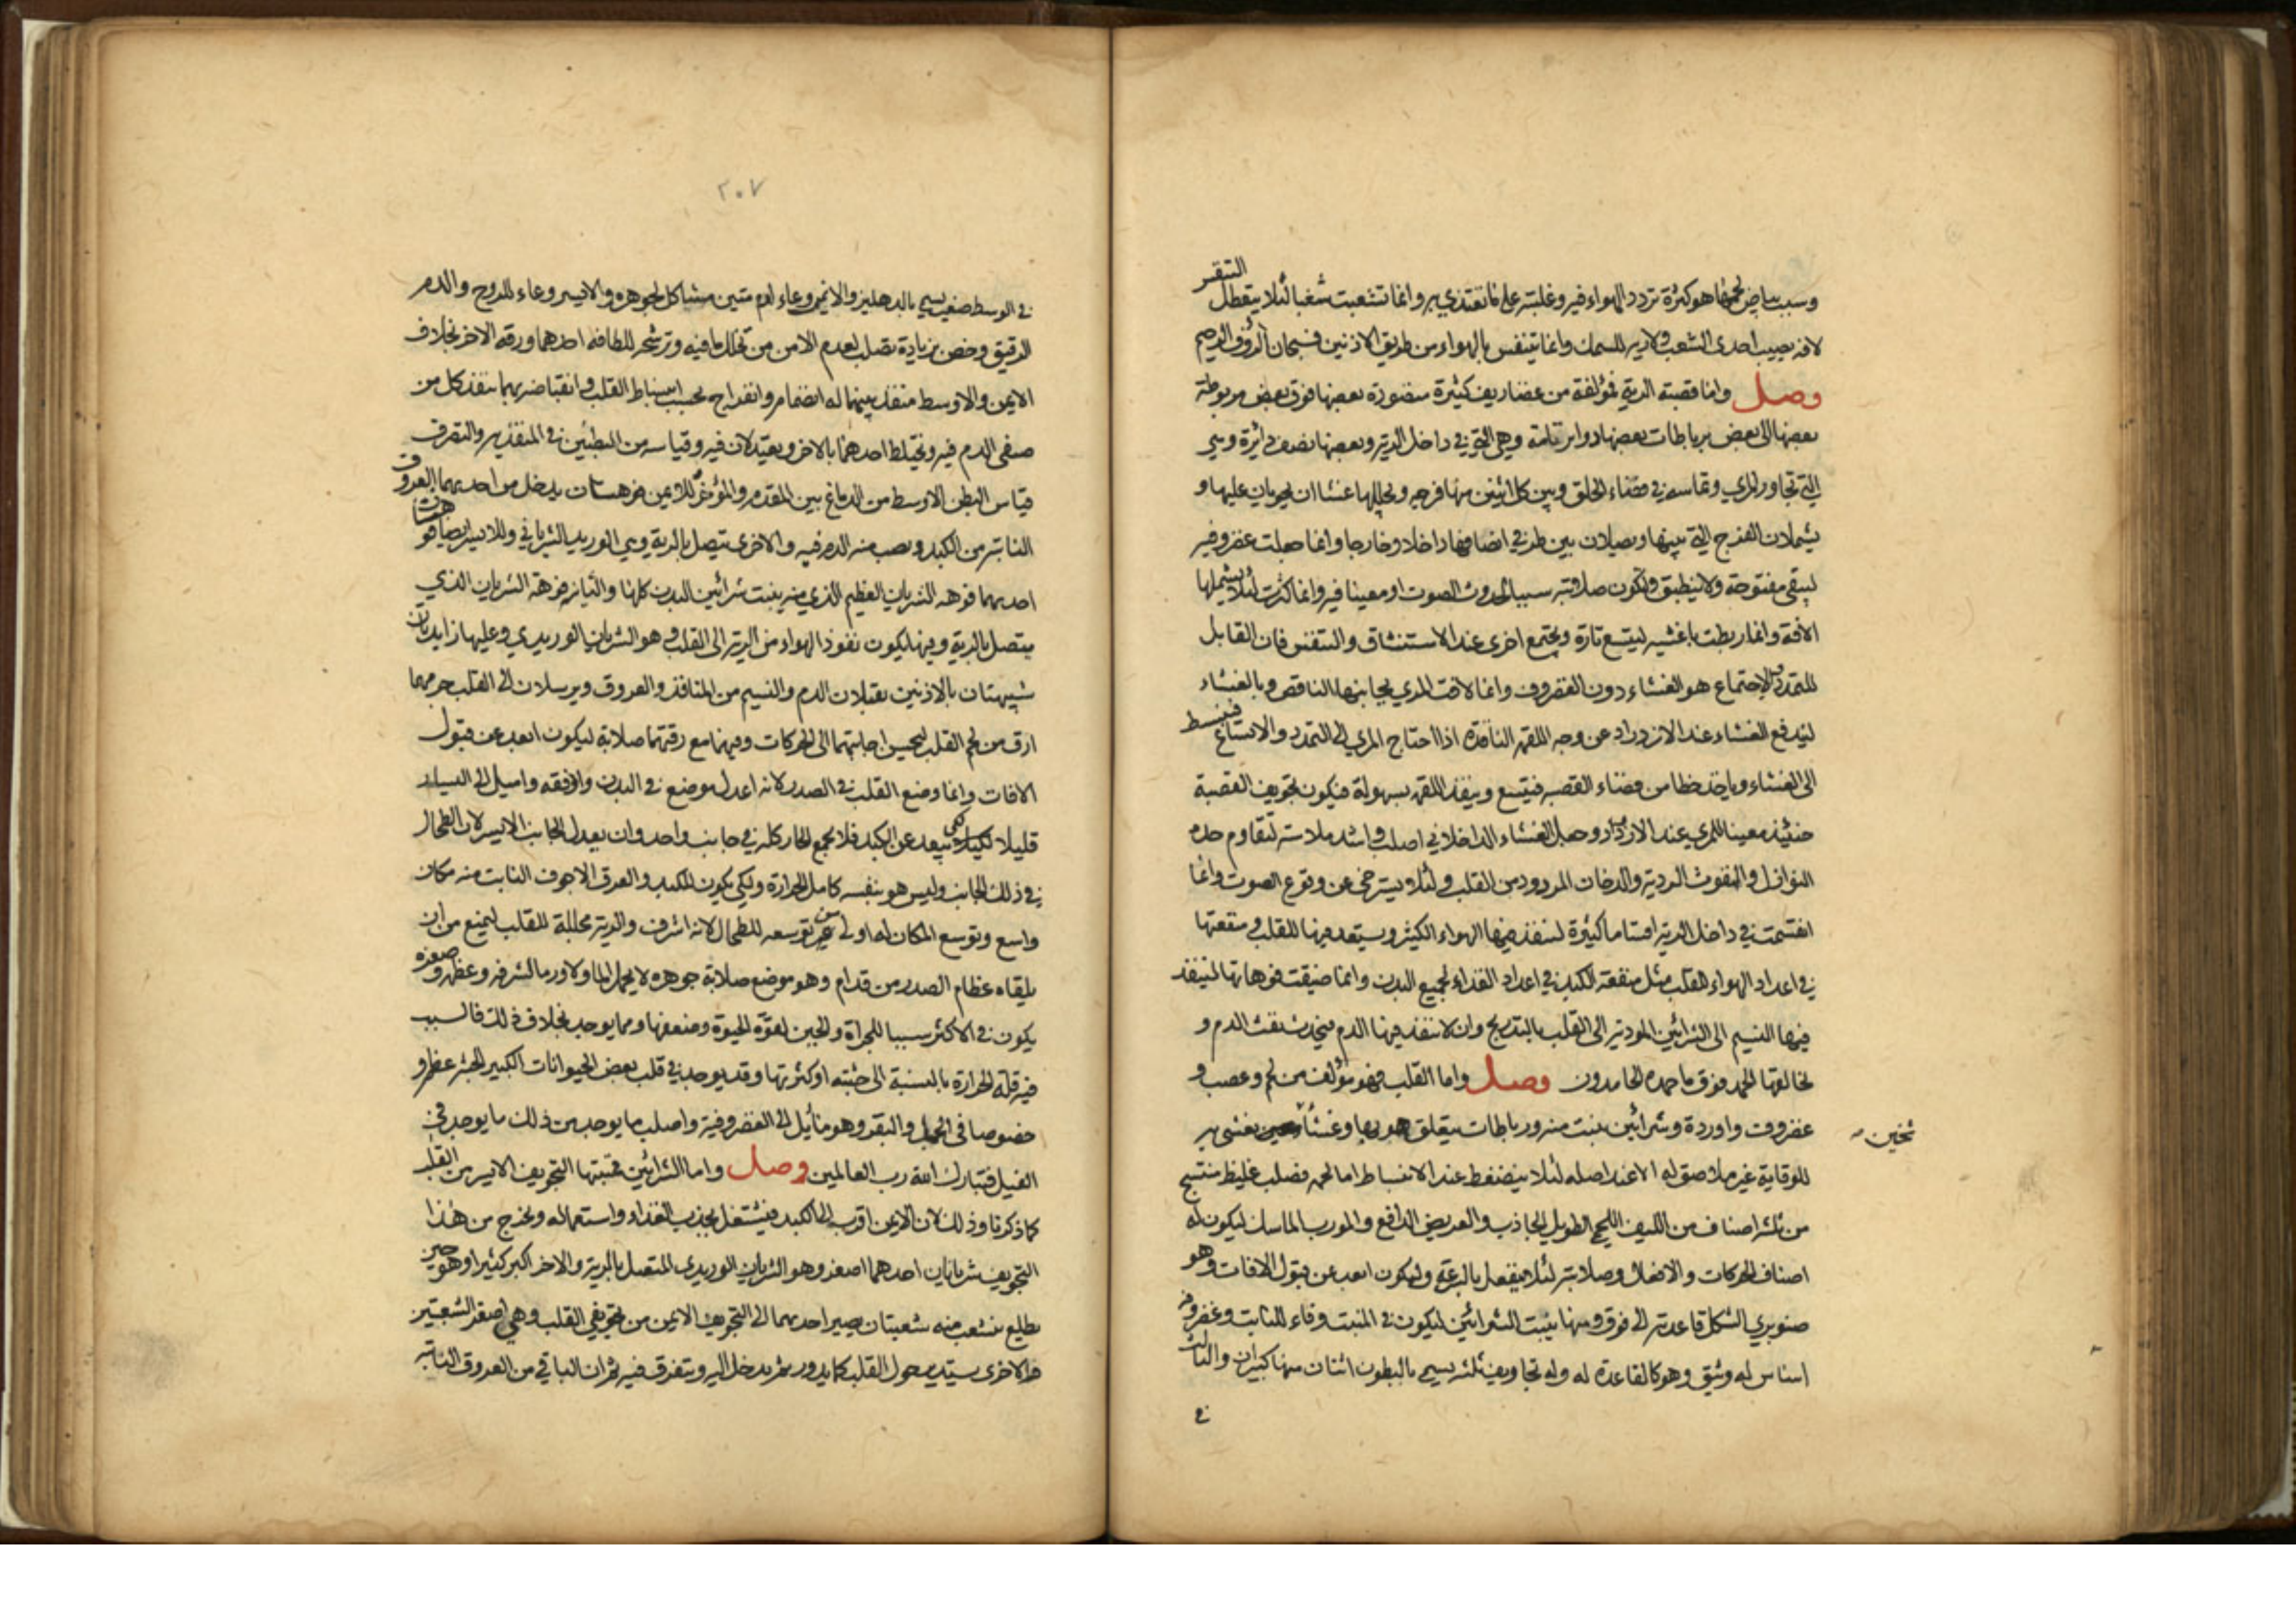 وسبب بياض لحمها هو كثرة تردد الهواء فيه وغلبته على ما تغتذي به وانما تشعبت شعبا لئلا يتعطل التنفس
لافة تصيب احدى الشعب ولا رية للسمك وانما يتنفس بالهواء من طريق الاذنين فسبحان الرؤف الرحيم
وصل واما قصبة الرية فمؤلفة من غضاريف كثيرة منضودة بعضها فوق بعض مربوطة
بعضها الى بعض برباطات بعضها دواير تامة وهي التي في داخل الرية وبعضها نصف دائرة وهي
التي تجاور المري وتماسه في فضاء الحلق وبين كل اثنين منها فرجه ويجللها غشاان يجريان عليها و
يشملان الفرج التي بينها ويصلان بين طرفي انصافها داخلا وخارجا وانما جعلت غضروفيه
لتبقى مفتوحة ولا ينطبق وتكون صلابته سببا لحدوث الصوت او معينا فيه وانما كثرت لئلا يشملها
الافة وانما ربطت باغشيه ليتسع تارة ويجتمع اخرى عند الاستنشاق والتنفس فان القابل
للتمدد والاجتماع هو الغشاء دون الغضروف وانما لاقت المري بجانبها الناقص وبالغشاء
ليندفع الغشاء عند الازدراد عن وجه اللقمه النافذة اذا احتاج المري الى التمدد والاتساع فينبسط
الى الغشاء وياخذ حظا من فضاء القصبه فيتسع وينفذ اللقمه بسهولة فيكون تجويف القصبة
حينئذ معينا للمري عند الازدراد وجعل الغشاء الداخلاني اصلب واشد ملاسته لتقاوم حدة
النوازل والنفوث الردية والدخان المردود من القلب ولئلا يسترخى عن وقع الصوت وانما
انقسمت في داخل الرية اقساما كثيرة لينفذ فيها الهواء الكثير ويستعد فيها للقلب ومنفعتها
في اعداد الهواء للقلب مثل منفعة الكبد في اعداد الغذاء لجميع البدن وانما ضيقت فوهاتها لينفذ
فيها النسيم الى الشرائين المودية الى القلب بالتدريج وان لا ينفذ فيها الدم فيحدث نفث الدم و
لخالقها الحمد فوق ما حمده الحامدون وصل واما القلب فهو مؤلف من لحم وعصب و
غضروف واوردة وشرائين ينبت منه ورباطات يتعلق هو بها وغشاء يغشى به
ثخين
للوقاية غير ملاصق له الا عند اصله لئلا ينضغط عند الانبساط اما لحمه فصلب غليظ منتسج
من ثلثه اصناف من الليف اللحمي الطويل الجاذب والعريض الدافع والمورب الماسك ليكون له
اصناف الحركات والافعال وصلابته لئلا ينفعل بالسرعة وليكون ابعد عن قبول الافات وهو
صنوبري الشكل قاعدته الى فوق ومنها ينبت الشرائين ليكون في المنبت وقاء للنابت وغضروفه
اساس له وثيق وهو كالقاعدة له وله تجاويف ثلثه يسمى بالبطون اثنان منها كبيران والثالث
في
٢٠٧
في الوسط صغير يسمى بالدهليز والايمن وعاء لدم متين مشاكل لجوهره والايسر وعاء للروح والدم
الرقيق وخص بزيادة تصلب لعدم الامن من تحلل ما فيه وترشحه للطافه احدهما ورقة الاخر بخلاف
الايمن والاوسط منفذ بينهما له انضمام وانفراج بحسب انبساط القلب وانقباضه بهما ينفذ كل من
صنفى الدم فيه ويختلط احدهما بالاخر ويعتدلان فيه وقياسه من البطنين في المنفذيه والتصرف
قياس البطن الاوسط من الدماغ بين المقدم والمؤخر وللايمن فوهتان يدخل من احديهما العروق
النابته من الكبد ويصب منه الدم فيه والاخرى يتصل بالرية وهي الوريد الشرياني وللايسر ايضا فوهتان
احديهما فوهه الشريان العظيم الذي منه ينبت شرائين البدن كلها والثانيه فوهة الشريان الذي
يتصل بالرية وفيها يكون نفوذ الهواء من الرية الى القلب وهو الشريان الوريدي وعليها زايدتان
شبيهتان بالاذنين تقبلان الدم والنسيم من المنافذ والعروق ويرسلان الى القلب جرمهما
ارق من لحم القلب ليحسن اجابتهما الى الحركات وفيهما مع رقتهما صلابة ليكون ابعد عن قبول
الافات وانما وضع القلب في الصدر لانه اعدل موضع في البدن واوفقه واميل الى اليسار
قليلا لكي يبعد عن الكبد فلا يجمع الحار كله في جانب واحد وان يعدل الجانب الايسر لان الطحال
في ذلك الجانب وليس هو بنفسه كامل الحرارة ولكي يكون للكبد والعرق الاجوف النابت منه مكان
واسع وتوسع المكان له اولى من توسعه للطحال لانه اشرف والرية مجللة للقلب ليمنع من ان
يلقاه عظام الصدر من قدام وهو موضع صلابة جوهره لا يحمل الما ولا ورما لشرفه وعظمه وصغره
يكون في الاكثر سببا للجراة والجبن لقوة الحيوة وضعفها ومما يوجد بخلاف ذلك فالسبب
فيه قلة الحرارة بالنسبة الى جثته او كثرتها وقد يوجد في قلب بعض الحيوانات الكبير الجثه عظم و
خصوصا في الجمل والبقر وهو مائل الى الغضروفية واصلب ما يوجد من ذلك ما يوجد في
الفيل فتبارك الله رب العالمين وصل واما الشرائين فمنبتها التجويف الايسر من القلب
كما ذكرنا وذلك لان الايمن اقرب الى الكبد فيشتغل بجذب الغذاء واستعماله ويخرج من هذا
التجويف شريانان احدهما اصغر وهو الشريان الوريدي المتصل بالرية والاخر اكبر كثيرا وهو حين
يطلع ينشعب منه شعبتان يصير احديهما الى التجويف الايمن من تجويفي القلب وهي اصغر الشعبتين
والاخرى يستدير حول القلب كما يدور ثم يدخل اليه ويتفرق فيه ثم ان الباقي من العروق النابته